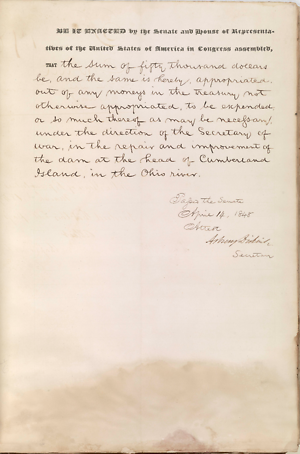 BE IT ENACTED by the Senate and House of Representa-
tives of the United States of America in Congress assembled,
THAT the sum of fifty thousand dollars
be, and the same is hereby, appropriated,
out of any moneys in the treasury not
otherwise appropriated, to be expended,
or so much thereof as may be necessary,
under the direction of the Secretary of
War, in the repair and improvement of
the dam at the head of Cumberland
Island, in the Ohio river.
Passed the Senate
April 14, 1848
Attest
Asbury Dickins,
Secretary